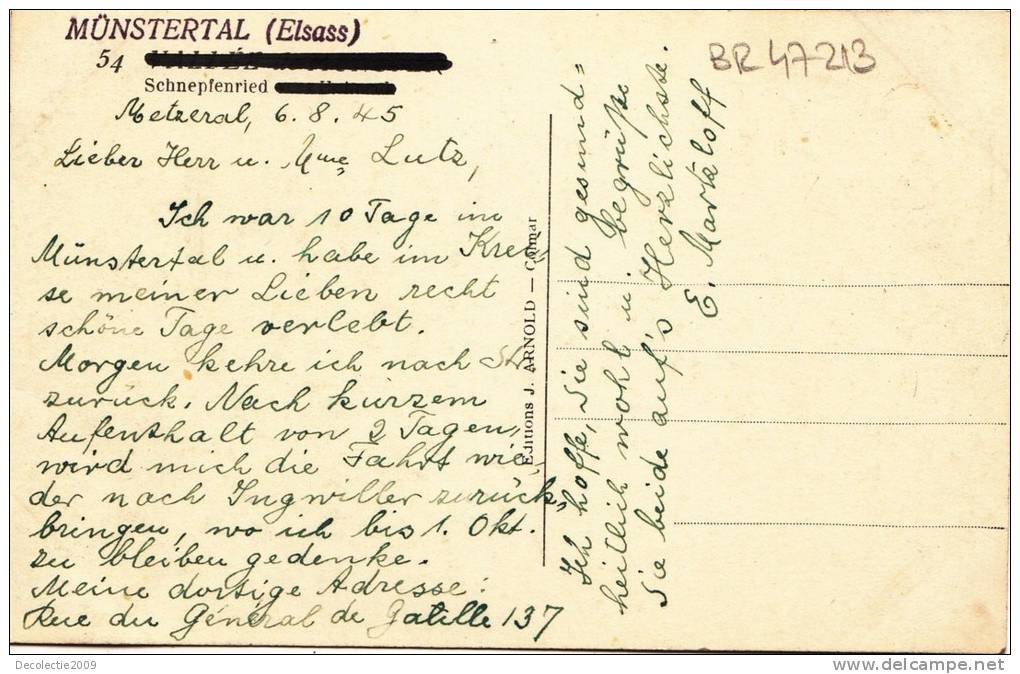 MÜNSTERTAL (Elsass)
54
Schnepfenried
BR 47213
Metzeral, 6. 8. 45
Lieber Herr u. Mme Lutz,
Ich war 10 Tage im
Münstertal u. habe im Krei-
se meiner Lieben recht
schöne Tage verlebt.
Morgen kehre ich nach Str.
zurück. Nach kurzem
Aufenthalt von 2 Tagen,
wird mich die Fahrt wie-
der nach Ingwiller zurück-
bringen, wo ich bis 1. Okt.
zu bleiben gedenke.
Meine dortige Adresse:
Rue du Général de 137
Editions J. ARNOLD — Colmar
Ich hoffe, Sie sind gesund=
heitlich wohl u. begrüße
Sie beide auf's Herzlichste.
E. Martzloff
Decolectie2009
www.delcampe.net